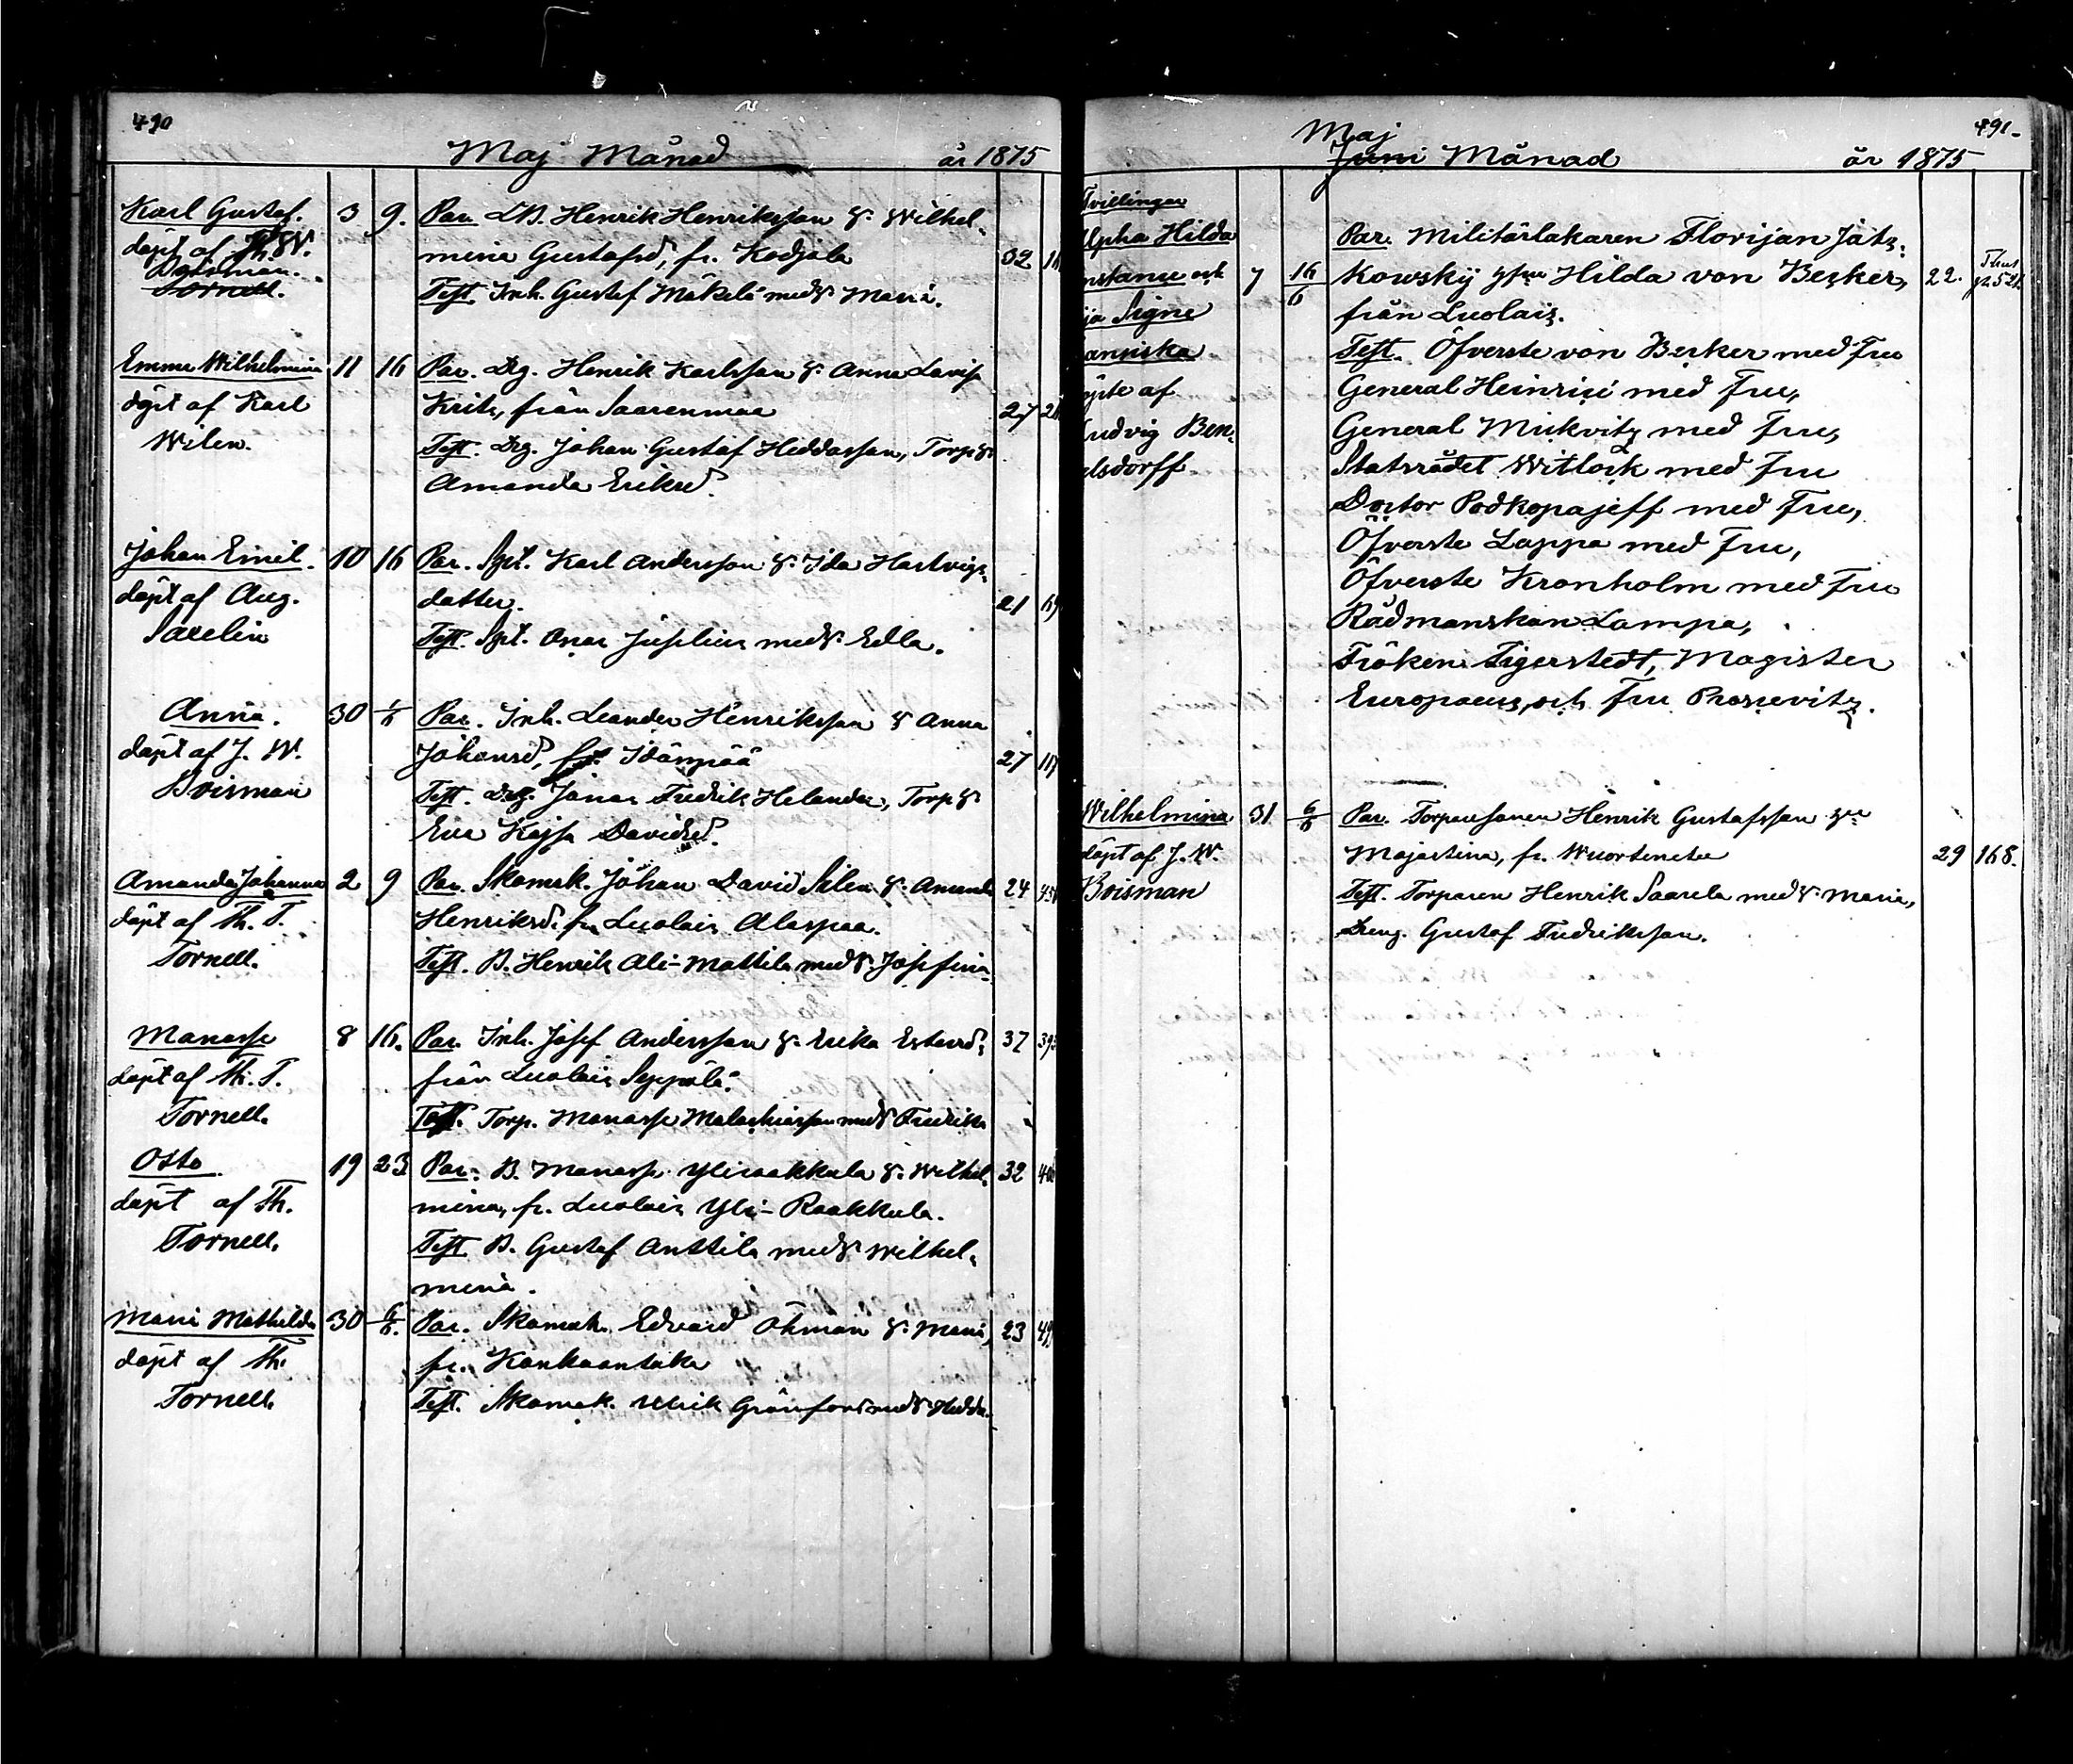 490
Maj Månad år 1875
Karl Gustaf. 3 9. Par. LB. Henrik Henriksson & Wilhel-
döpt af J. W. mina Gustafsd, fr. Kodjala 32
Boisman. Test. Inh. Gustaf Mäkelä med & Maria.
Tornell.
Emma Wilhelmina 11 16 Par. Dg. Henrik Karlsson & Anna Lovisa
döpt af Karl Krits, från Saarenmaa 27
Wilen. Test. Dg. Johan Gustaf Heddasson, Torp &
Amanda Eriksd.
Johan Emil. 10 16 Par. Spt. Karl Andersson & Ida Hartvigs-
döpt af Aug. datter. 21
Saxelin Test. Spt. Onas Juselius med & Edla.
Anna. 30 Par. Inh. Leander Henriksson & Anna
döpt af J. W. Johansd, fr. Idänpää 27
Boisman Test. Dg. Jonas Fredrik Helander, Torp &
Eva Kajsa Davidsd.
Amanda Johanna 2 9 Par. Skomak. Johan David Silen & Amanda 24
döpt af Th. T. Henriksd. fr. Luolais Alaspaa.
Tornell. Test. B. Henrik Ali-Mattila med & Josefina
Manasse 8 16. Par. Inh. Josef Andersson & Erika Estersd, 37
döpt af Th. T. från Luolais Seppälä.
Tornell. Test. Torp. Manasse Malachiasson med & Fredrika
Otto 19 23 Par. B. Manasse Yliraakkula & Wilhel- 32
döpt af Th. mina, fr. Luolais Yli-Raakkula.
Tornell. Test B. Gustaf Anttila med & Wilhel-
mina.
Maria Mathilda 30 6/6. Par. Skomak. Edvard Öhman & Maria, 23
döpt af Th. fr. Kankaantaka
Tornell. Test. Skomak. Ulrik Grönfors med & Hedda.
491.
Maj
Juni Månad år 1875
Tvillingar
Alpha Hilda Par. Militärläkaren Florijan Jatz-
nstance och 7 16/6 kowsky & fru Hilda von Becker, 22.
ja Signe från Luolais.
anniska Test. Öfverste von Becker med Fru
öpte af General Heinrici med Fru,
Ludvig Ben- General Mickvitz med Fru,
elsdorff Statsrådet Witlock med Fru
Doctor Podkopajeff med Fru,
Öfverste Lappa med Fru,
Öfverste Kronholm med Fru
Rådmanskan Lampa,
Fröken Tigerstedt, Magister
Europaeus, och Fru Prosrevitz.
Wilhelmina 31 6/6 Par. Torparesonen Henrik Gustafsson
döpt af J. W. Majastina, fr. Wuortenetu 29 168.
Boisman Test. Torparen Henrik Saarela med & Maria,
Dreng. Gustaf Fredriksson.